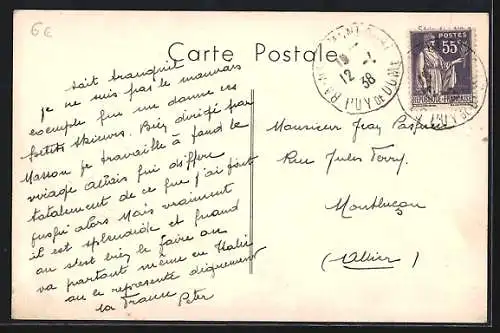 6€
Carte Postale
POSTES
55c
REPUBLIQUE FRANÇAISE
12 -1
38
PUY DE DOME
soit tranquil
je ne suis pas le mauvais
exemple que me donne ces
petits skieurs. Bien dirigé par
Masson je travaille à fond le
virage qui diffère
totalement de ce que j'ai fait
jusqu'alors Mais vraiment
il est splendide et quand
on s'est bien le faire on
va partout même en Italie
ou ce représente diguement
la France Peter
Monsieur Jean
Rue Jules Ferry.
Montluçon
(Allier)